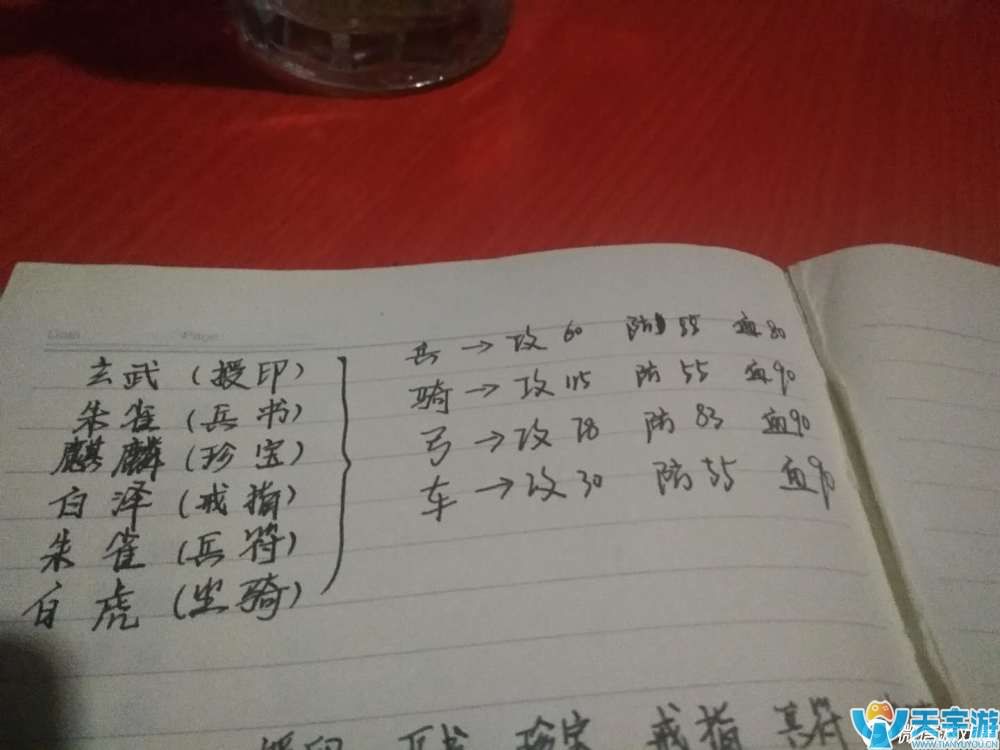 Date Page
玄武(授印)
朱雀(兵书)
麒麟(珍宝)
白泽(戒指)
朱雀(兵符)
白虎(坐骑)
兵→攻60 防55 血80
骑→攻115 防55 血90
弓→攻78 防83 血90
车→攻30 防55 血90
珍宝 戒指
天宇游
WWW.TIANYUYOU.CN